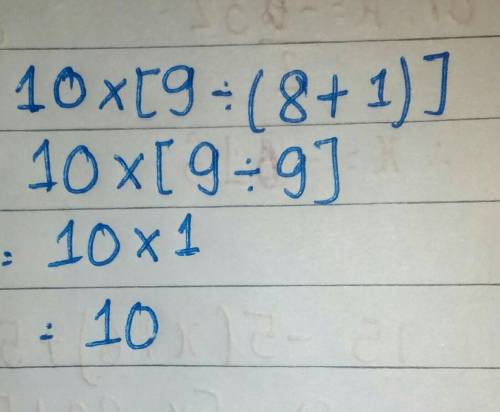 10×[9÷(8+1)]
10×[9÷9]
= 10×1
= 10